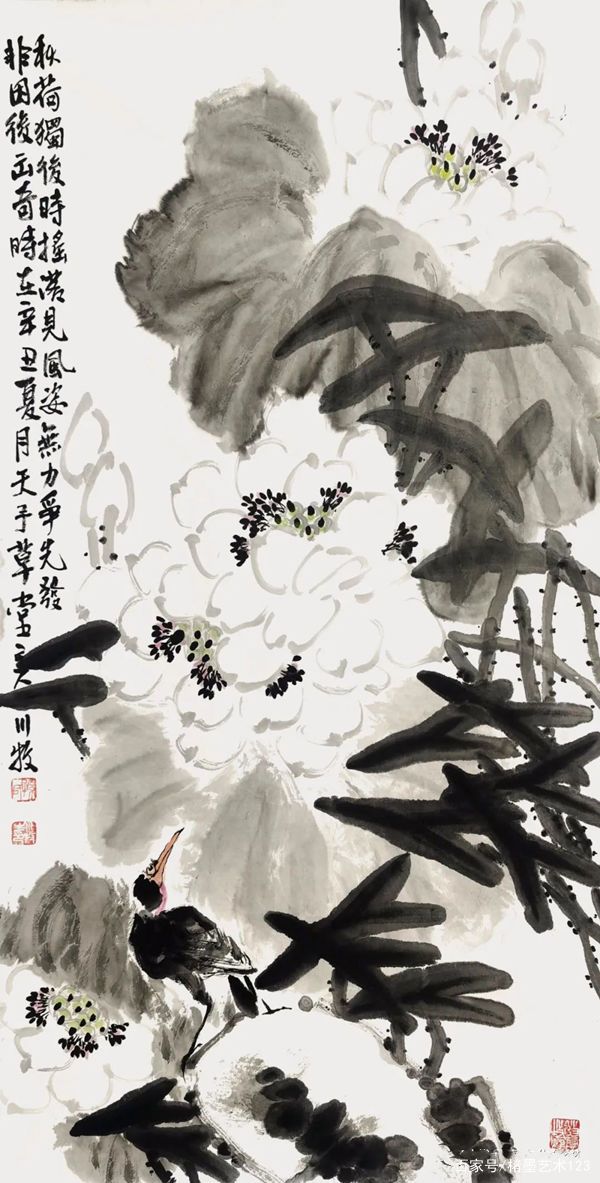 秋荷獨後時搖落見風姿無力爭先發
非因後出奇時在辛丑夏月天予草堂主人川牧
百家号/格墨艺术123